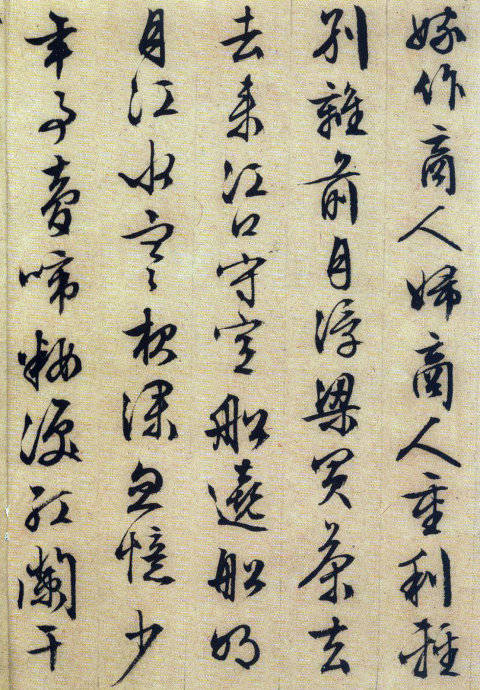 嫁作商人婦商人重利輕
別離前月浮梁買茶去
去来江口守空船遶船明
月江水寒夜深忽憶少
年事夢啼粧淚紅瀾干